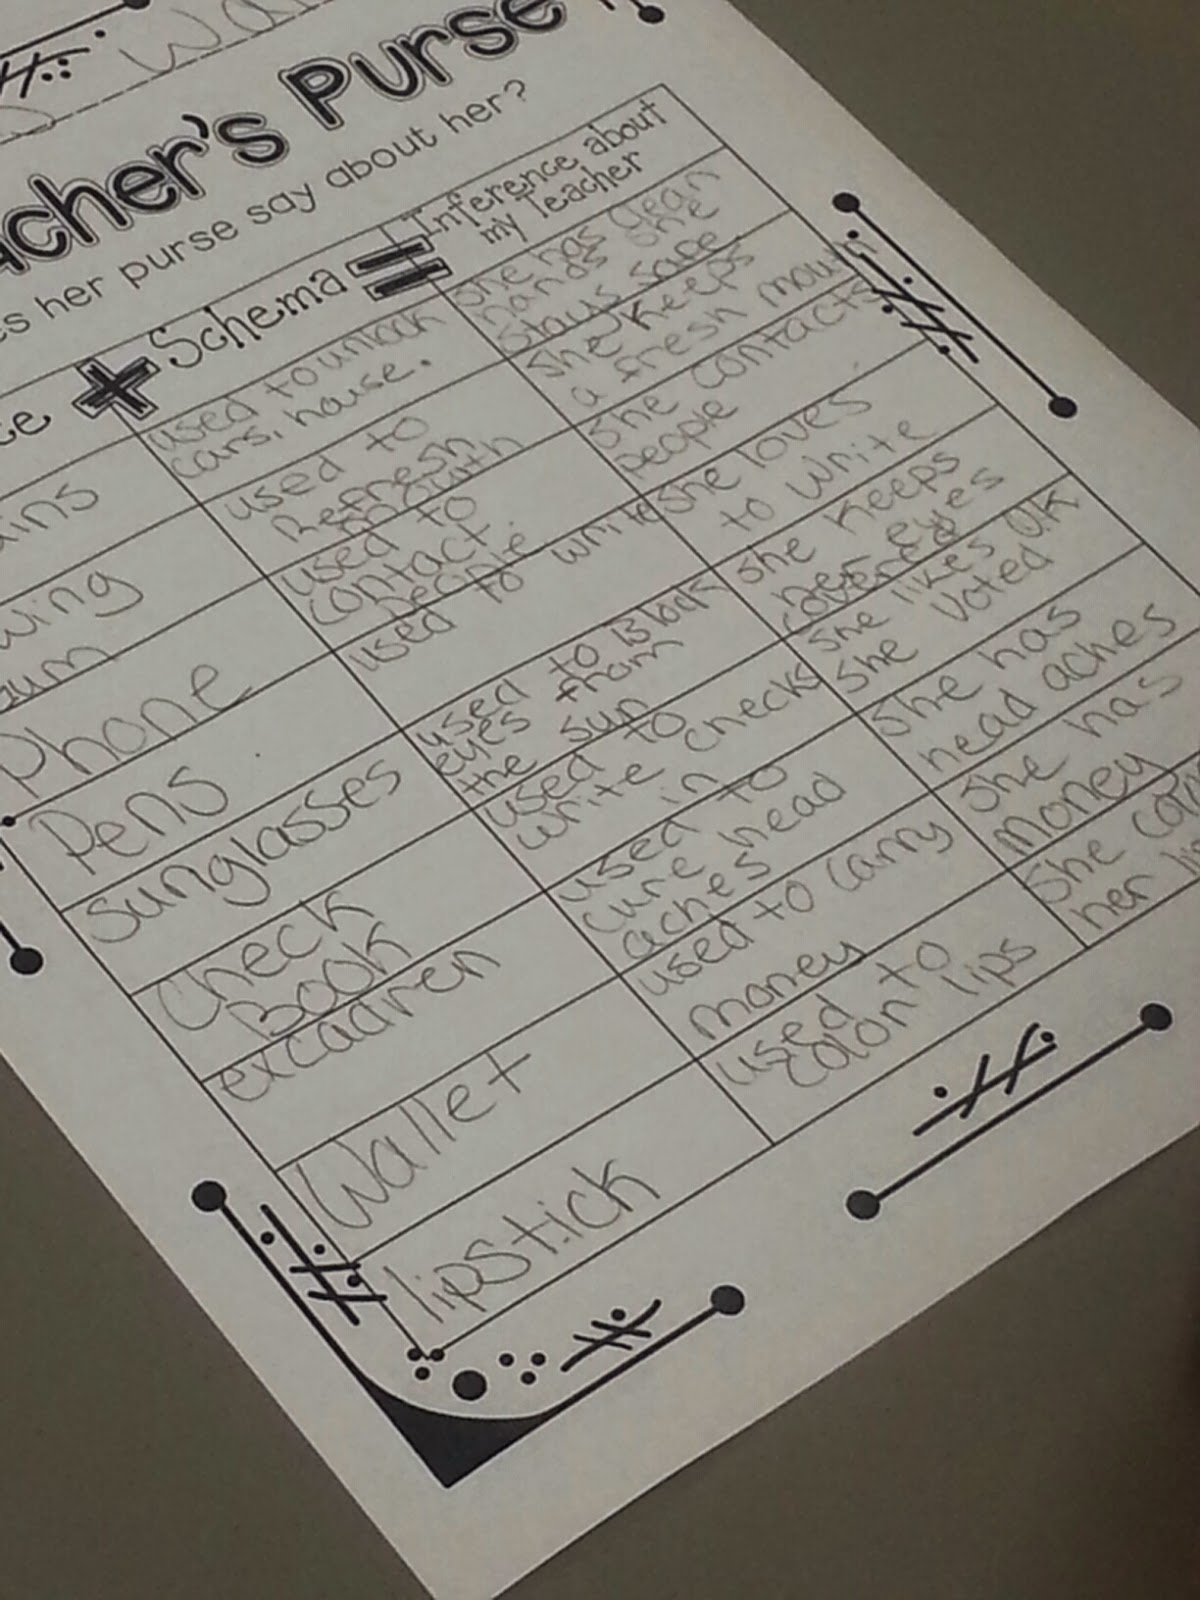 Purse
her purse say about her?
+ Schema = Inference about
my Teacher
used to unlock
cars, house.
she has clean
hands she
stays safe
gum
used to
Refresh
mouth
she keeps
a fresh mouth
Phone
used to
contact
people
she contacts
people
Pens
used to write
she loves
to write
Sunglasses
used to Block
eyes from
the sun
she keeps
her eyes
covered
Check
Book
used to
write checks
she likes
she voted
excadren
used in to
cure head
aches
she has
head aches
Wallet
used to carry
money
she has
money
lipstick
used to
color lips
she
her